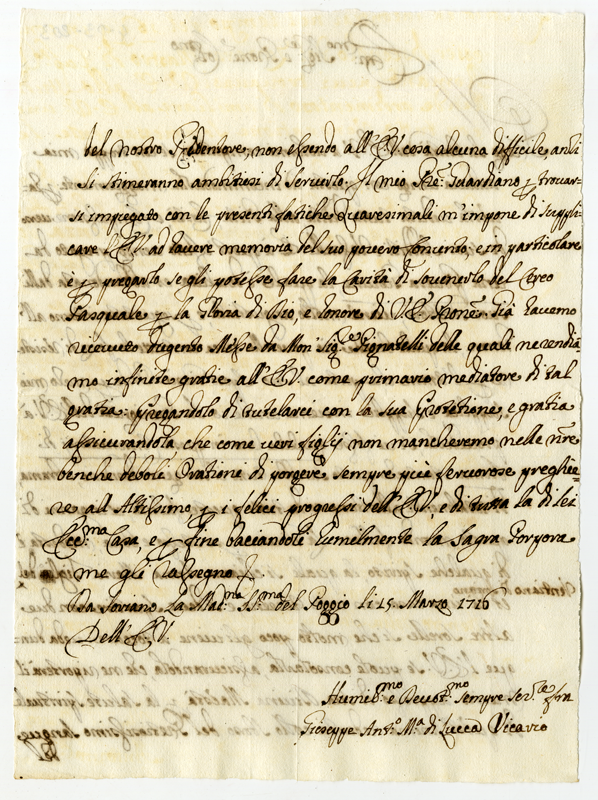 del nostro Redentore, non essendo all'E.V. cosa alcuna difficile, anzi
si stimeranno ambitiosi di servirlo. Il mio Pre. Guardiano p trovar=
si impiegato con le presenti fatiche Quaresimali m'impone di suppli
care l'E.V. ad havere memoria del suo povero Convento; e in particolare
è p pregarlo se gli potesse fare la Carità di sovenirlo del Cereo
Pasquale p la Gloria di Dio, e honore di V.E. Prone. Già havemo
ricevuto ducento Messe da Mon. Sigre Pignatelli delle quali ne rendia=
mo infinite gratie all'E.V. come primario mediatore di tal
gratia. Pregandolo di tutelarci con la sua Protetione, e gratia
assicurandola che come veri figlij non mancheremo nelle nre
benche deboli Orationi di porgere sempre più fervorose preghie=
re all'Altissimo p i felici progressi dell'E.V., e di tutta la di lei
Eccma Casa, e p fine baciandole humilmente la Sagra Porpora
me gli rassegno
Da Soriano La Madna SSma del Poggio li 15. Marzo 1716
Dell'E.V.
Humilmo e Devotmo sempre Serre fra
Gioseppe Anto Ma di Lucca Vicario